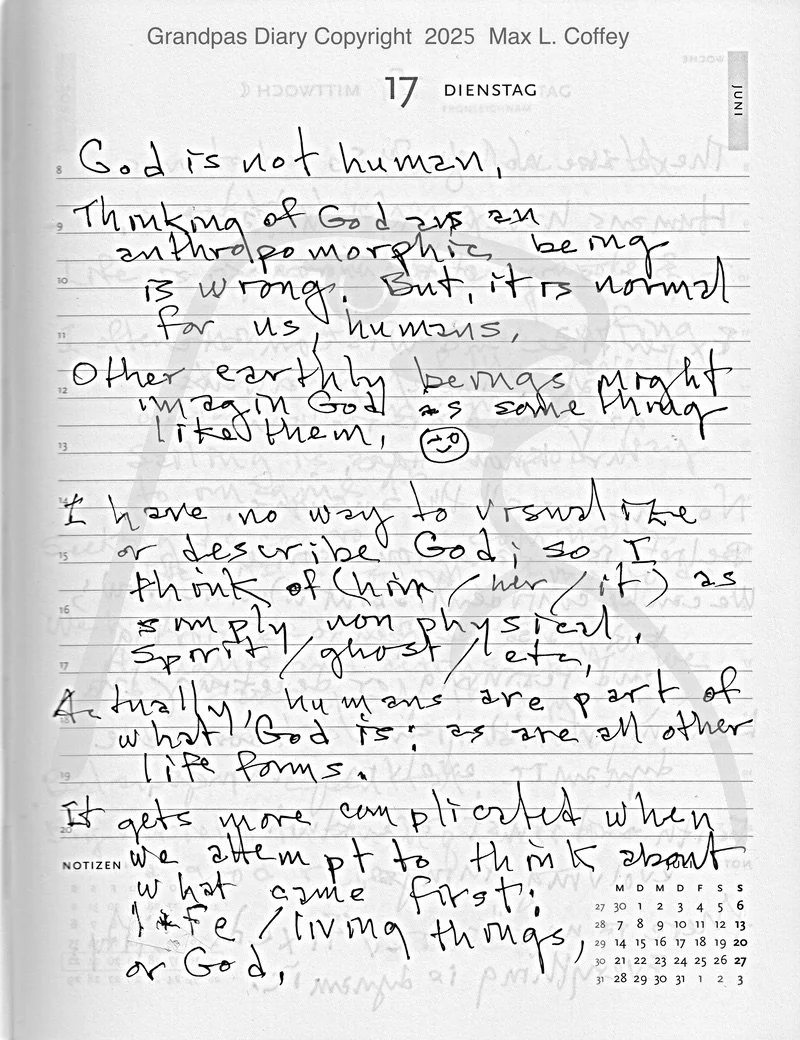 Grandpas Diary Copyright 2025 Max L. Coffey
17 DIENSTAG
JUNI
8 God is not human,
9 Thinking of God as an
anthropomorphic being
10 is wrong. But, it is normal
11 for us, humans,
Other earthly beings might
12 imagin God as something
13 like them,
14 I have no way to visualize
15 or describe God; so I
think of (him / her / it) as
16 simply non physical,
17 spirit / ghost / etc,
Actually, humans are part of
18 what God is; as are all other
19 life forms.
It gets more complicated when
20
NOTIZEN we attempt to think about
what came first;
life / living things,
or God,
M D M D F S S
27 30 1 2 3 4 5 6
28 7 8 9 10 11 12 13
29 14 15 16 17 18 19 20
30 21 22 23 24 25 26 27
31 28 29 30 31 1 2 3